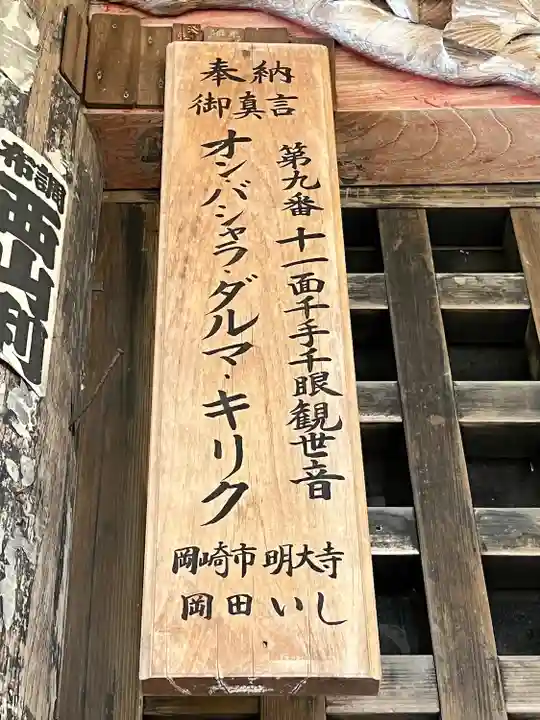 奉納
御真言
第九番 十一面千手千眼観世音
オン・バ・シャラ・ダルマ・キリク
岡崎市 明大寺
岡田いし
布調
西山